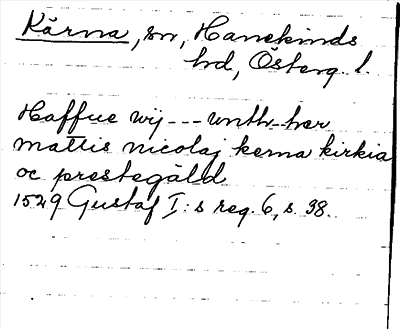 Kärna, sn, Hanekinds
hrd, Österg. l.
Haffue wij --- vnth-her
mattis nicolaj kerna kirkia
oc prestegäld
1529 Gustaf I:s reg. 6, s. 98.